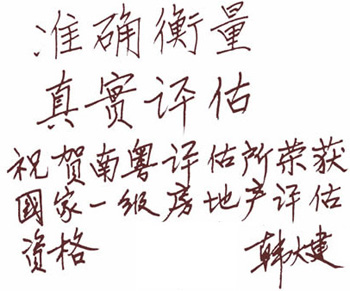 准确衡量
真實评估
祝贺南粤评估所荣获
國家一级房地产评估
资格 韩大建